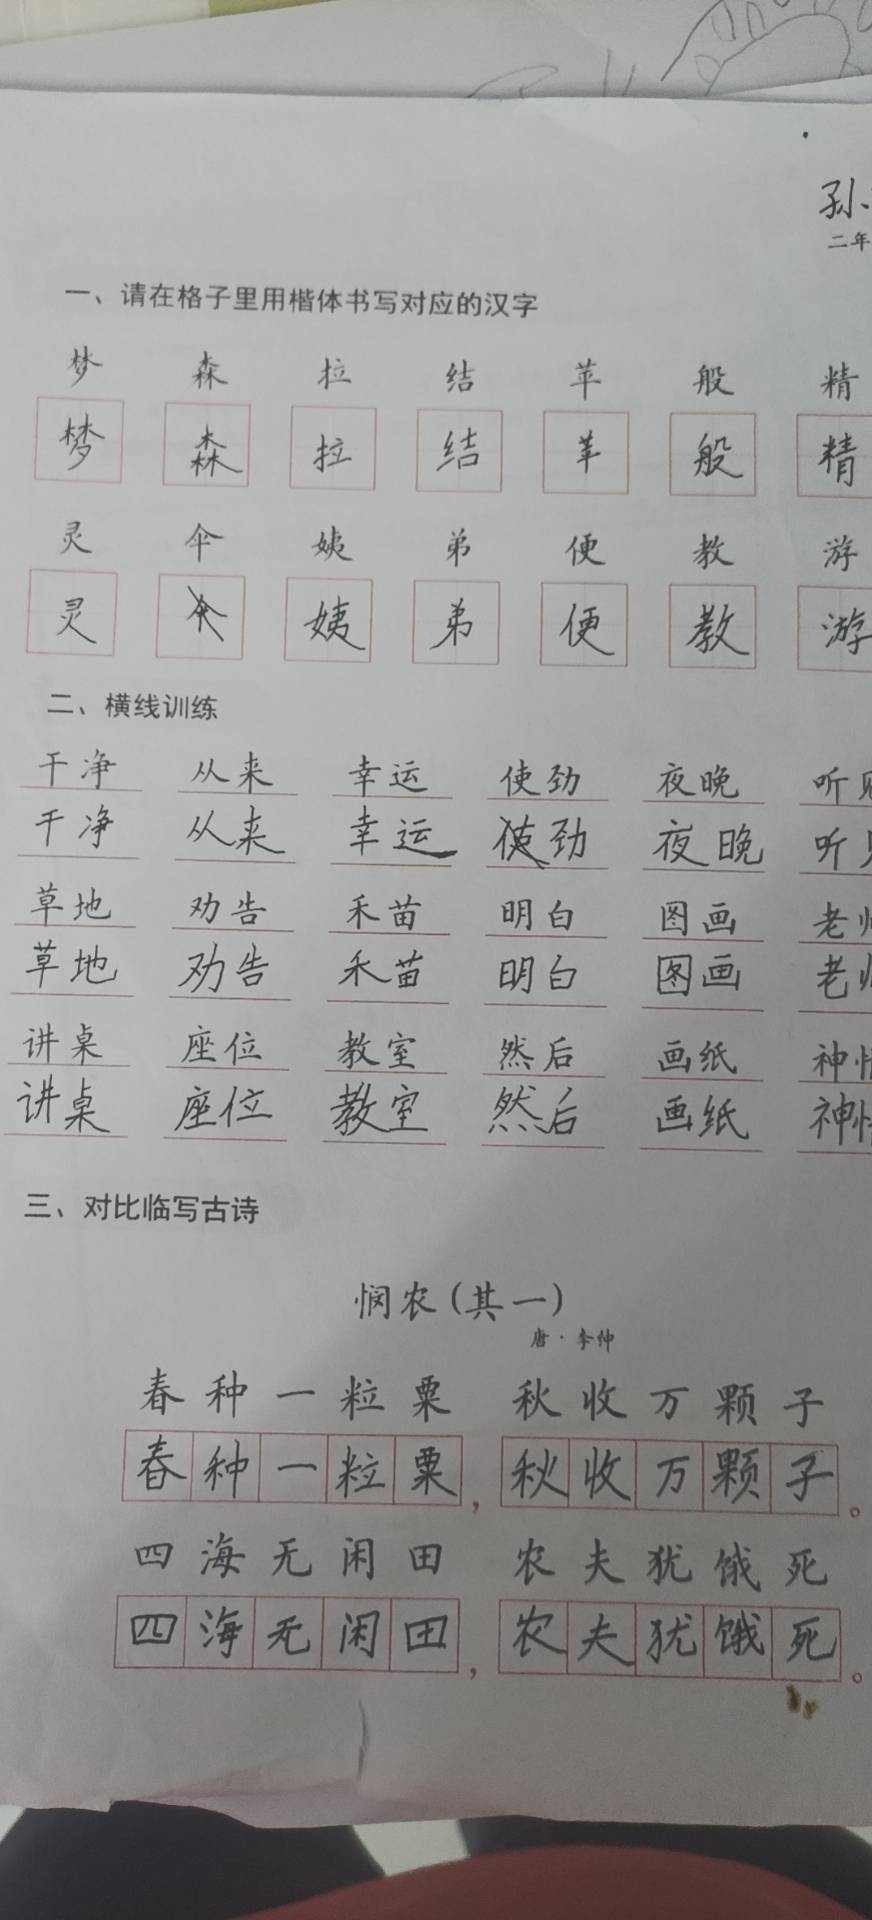 孙
二年
一、请在格子里用楷体书写对应的汉字
梦 森 拉 结 苹 般 精
梦 森 拉 结 苹 般 精
灵 伞 姨 弟 便 教 游
灵 伞 姨 弟 便 教 游
二、横线训练
干净 从来 幸运 使劲 夜晚 听见
干净 从来 幸运 使劲 夜晚 听见
草地 劝告 禾苗 明白 图画 老师
草地 劝告 禾苗 明白 图画 老师
讲桌 座位 教室 然后 画纸 神情
讲桌 座位 教室 然后 画纸 神情
三、对比临写古诗
悯农(其一)
唐·李绅
春种一粒粟 秋收万颗子
春种一粒粟,秋收万颗子。
四海无闲田 农夫犹饿死
四海无闲田,农夫犹饿死。